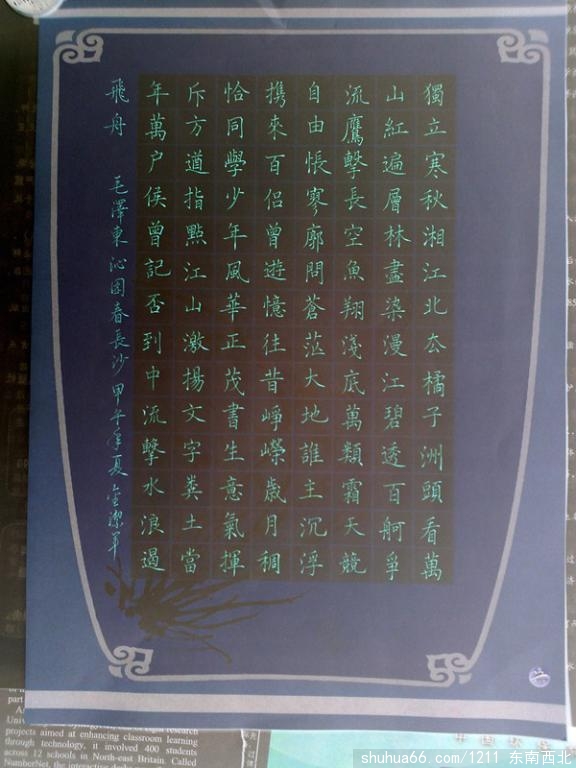 獨立寒秋湘江北厺橘子洲頭看萬
山紅遍層林盡染漫江碧透百舸爭
流鷹擊長空魚翔淺底萬類霜天競
自由悵寥廓問蒼茫大地誰主沉浮
携來百侣曾遊憶往昔崢嶸歲月稠
恰同學少年風華正茂書生意氣揮
斥方遒指點江山激揚文字糞土當
年萬户侯曾記否到中流擊水浪遏
飛舟 毛澤東沁園春長沙 甲午年夏 金潔軍
projects aimed at enhancing classroom learning
through technology, it involved 400 students
across 12 schools in North-east Britain. Called
NumberNet, the interactive
shuhua66.com/1211 东南西北